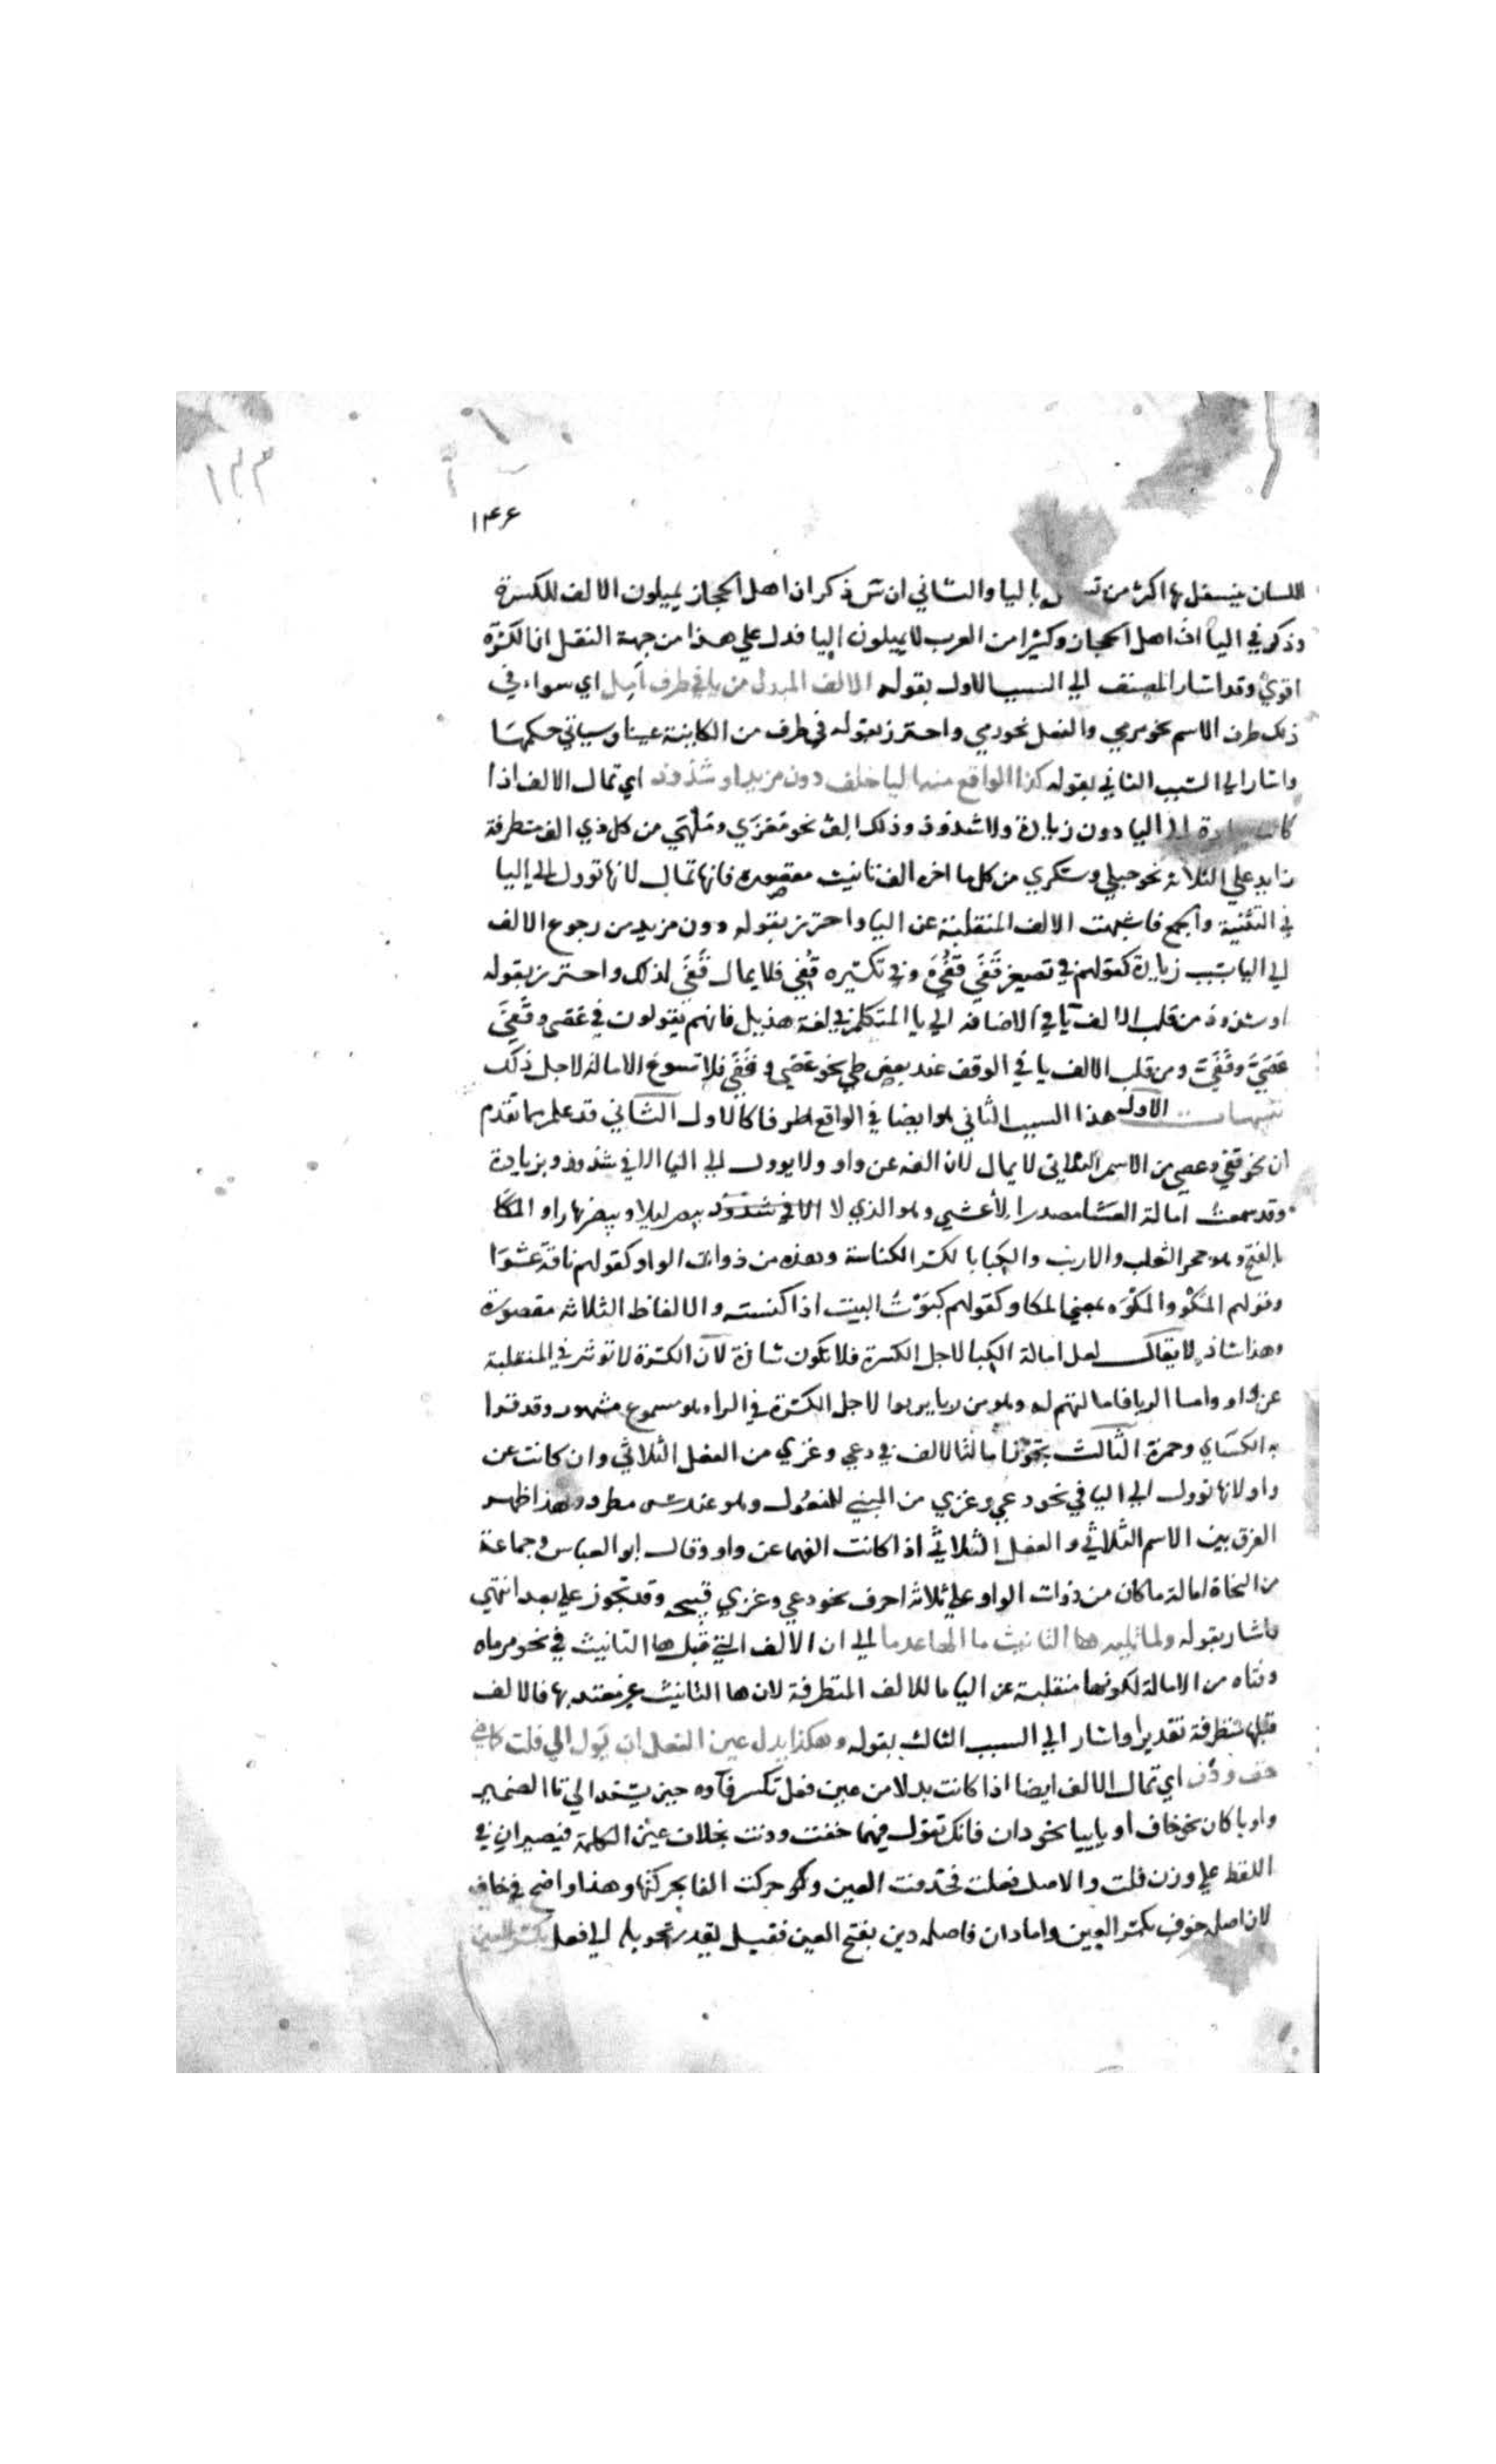 ١٣٣
١٤٦
اللسان يتسفل بها اكثر من باليا والثاني ان س ذكر ان اهل الحجاز يميلون الالف للكسرة
وذكر في اليا ان اهل الحجاز وكثيرا من العرب لا يميلون اليا فدل علي هذا من جهة النقل ان الكسرة
اقوي وقد اشار المصنف الي السبب الاول بقوله الالف المبدل من يا في طرف امل اي سواء في
ذلك طرف الاسم نحو مرمي والفعل نحو رمي واحترز بقوله في طرف من الكاينة عينا وسياتي حكمها
واشار الي السبب الثاني بقوله كذا الواقع منه اليا خلف دون مزيد او شذوذ اي تمال الالف اذا
اليا دون زيادة ولا شذوذ وذلك الف نحو مغزي وملهي من كل ذي الف متطرفة
زايد علي الثلاثة نحو حبلي وسكري من كل ما اخره الف تانيث مقصورة فانها تمال لانها تؤول الي اليا
في التثنية والجمع فاشبهت الالف المنقلبة عن اليا واحترز بقوله دون مزيد من رجوع الالف
الي اليا بسبب زيادة كقولهم في تصغير قفي قفي وفي تكسيره قفي فلا يمال قفي لذلك واحترز بقوله
او شذوذ من قلب الالف يا في الاضافة الي يا المتكلم في لغة هذيل فانهم يقولون في عصي وقفي
عصي وقفي ومن قلب الالف يا في الوقف عند بعض طي نحو عصي وقفي فلا تسوغ الامالة لاجل ذلك
تنبيهات الاول هذا السبب الثاني هو ايضا في الواقع طرفا كالاول الثاني قد علم مما تقدم
ان نحو قفي وعصي من الاسم الثلاثي لا يمال لان الفه عن واو ولا يؤول الي اليا الا في شذوذ وبزيادة
وقد سمعت امالة العشا مصدرا لاعشي وهو الذي لا الا في شذوذ يبصر ليلا ويبصر نهارا والمكا
بالفتح وهو جحر الثعلب والارنب والكبا بالكسر الكناسة وهذه من ذوات الواو كقولهم ناقة عشوا
وقولهم المكو والمكوه بمعني المكا وكقولهم كبوت البيت اذا كنسته والالفاظ الثلاثة مقصورة
وهذا شاذ لا يقال لعل امالة الكبا لاجل الكسرة فلا تكون شاذة لان الكسرة لا توثر في المنقلبة
عن واو واما الربا فامالتهم له وهو من ربا يربوا لاجل الكسرة في الراء وهو مسموع مشهور وقد قرا
به الكساي وحمزة الثالث تجوز امالة الالف في دعي وغزي من الفعل الثلاثي وان كانت عن
واو لانها تؤول الي اليا في نحو دعي وغزي من المبني للمفعول وهو عند س مطرد وبهذا ظهر
الفرق بين الاسم الثلاثي والفعل الثلاثي اذا كانت الفهما عن واو وقال ابو العباس وجماعة
من النحاة امالة ما كان من ذوات الواو علي ثلاثة احرف نحو دعي وغزي قبيحه وقد تجوز علي بعد انتهي
فاشار بقوله ولما تليه ها التانيث ما الها عدما الي ان الالف التي قبل ها التانيث في نحو مرماه
وفتاه من الامالة لكونها منقلبة عن اليا ما للالف المتطرفة لان ها التانيث غير معتد بها فالالف
قبلها متطرفة تقديرا واشار الي السبب الثالث بقوله وهكذا بدل عين الفعل ان يؤل الي فلت كماضي
خف ودن اي تمال الالف ايضا اذا كانت بدلا من عين فعل تكسر فاؤه حين يسند الي تا الضمير
واويا كان نحو خاف او ياييا نحو دان فانك تقول فيهما خفت ودنت بحذف عين الكلمة فيصيران في
اللفظ علي وزن فلت والاصل فعلت فحذفت العين وحركت الفا بحركتها وهذا واضح في خاف
لان اصله خوف بكسر العين واما دان فاصله دين بفتح العين فقيل يقدر تحويله الي فعل بكسر العين